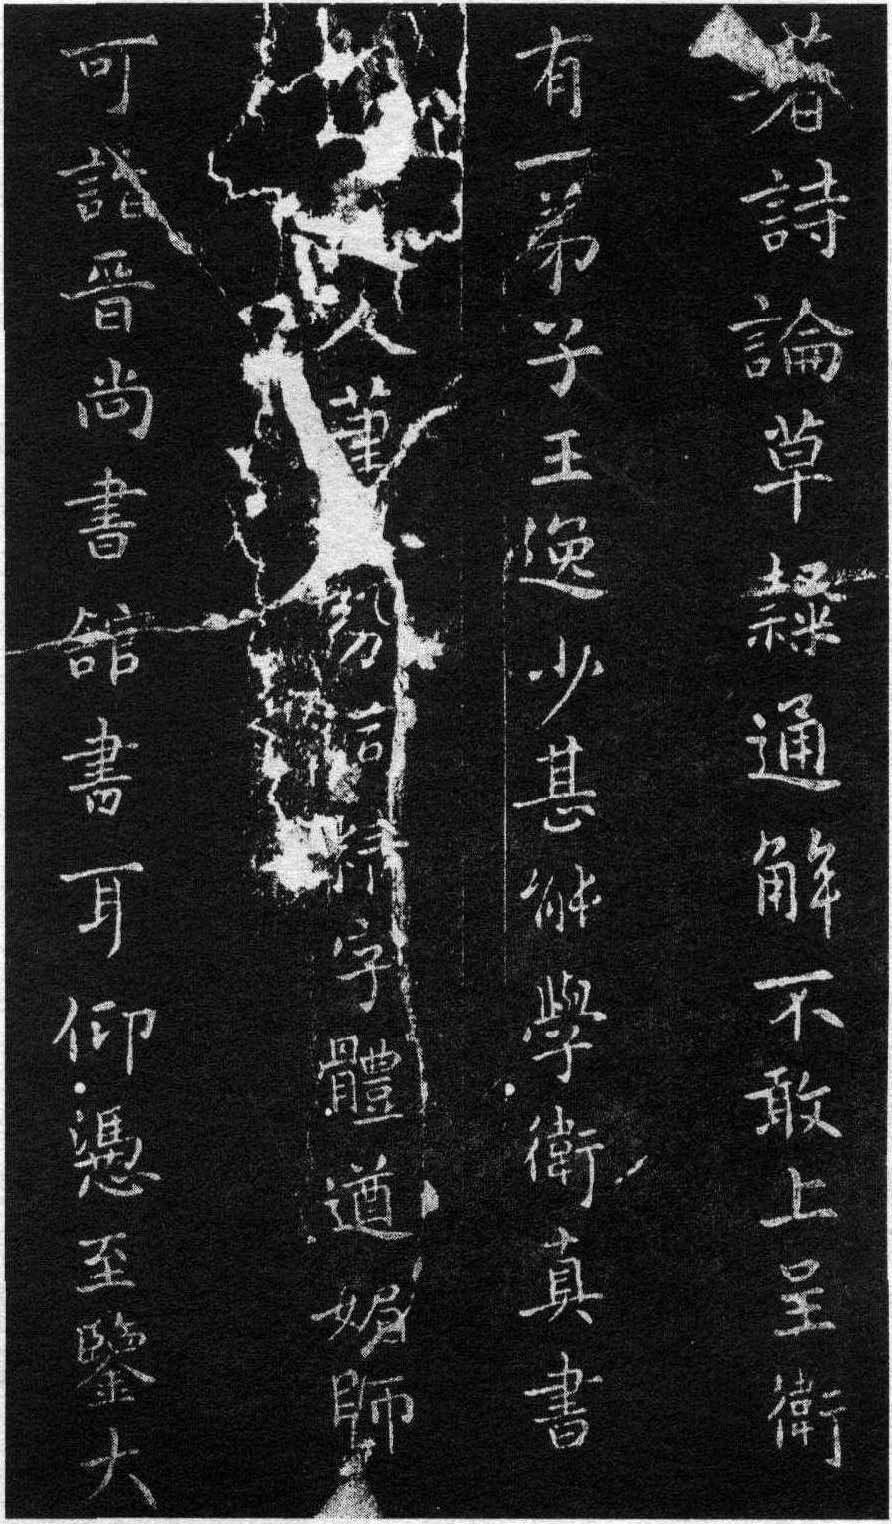 著詩論草隸通解不敢上呈衛
有一弟子王逸少甚能學衛真書
人筆勢洞精字體遒媚師
可詣晉尚書舘書耳仰憑至鑒大